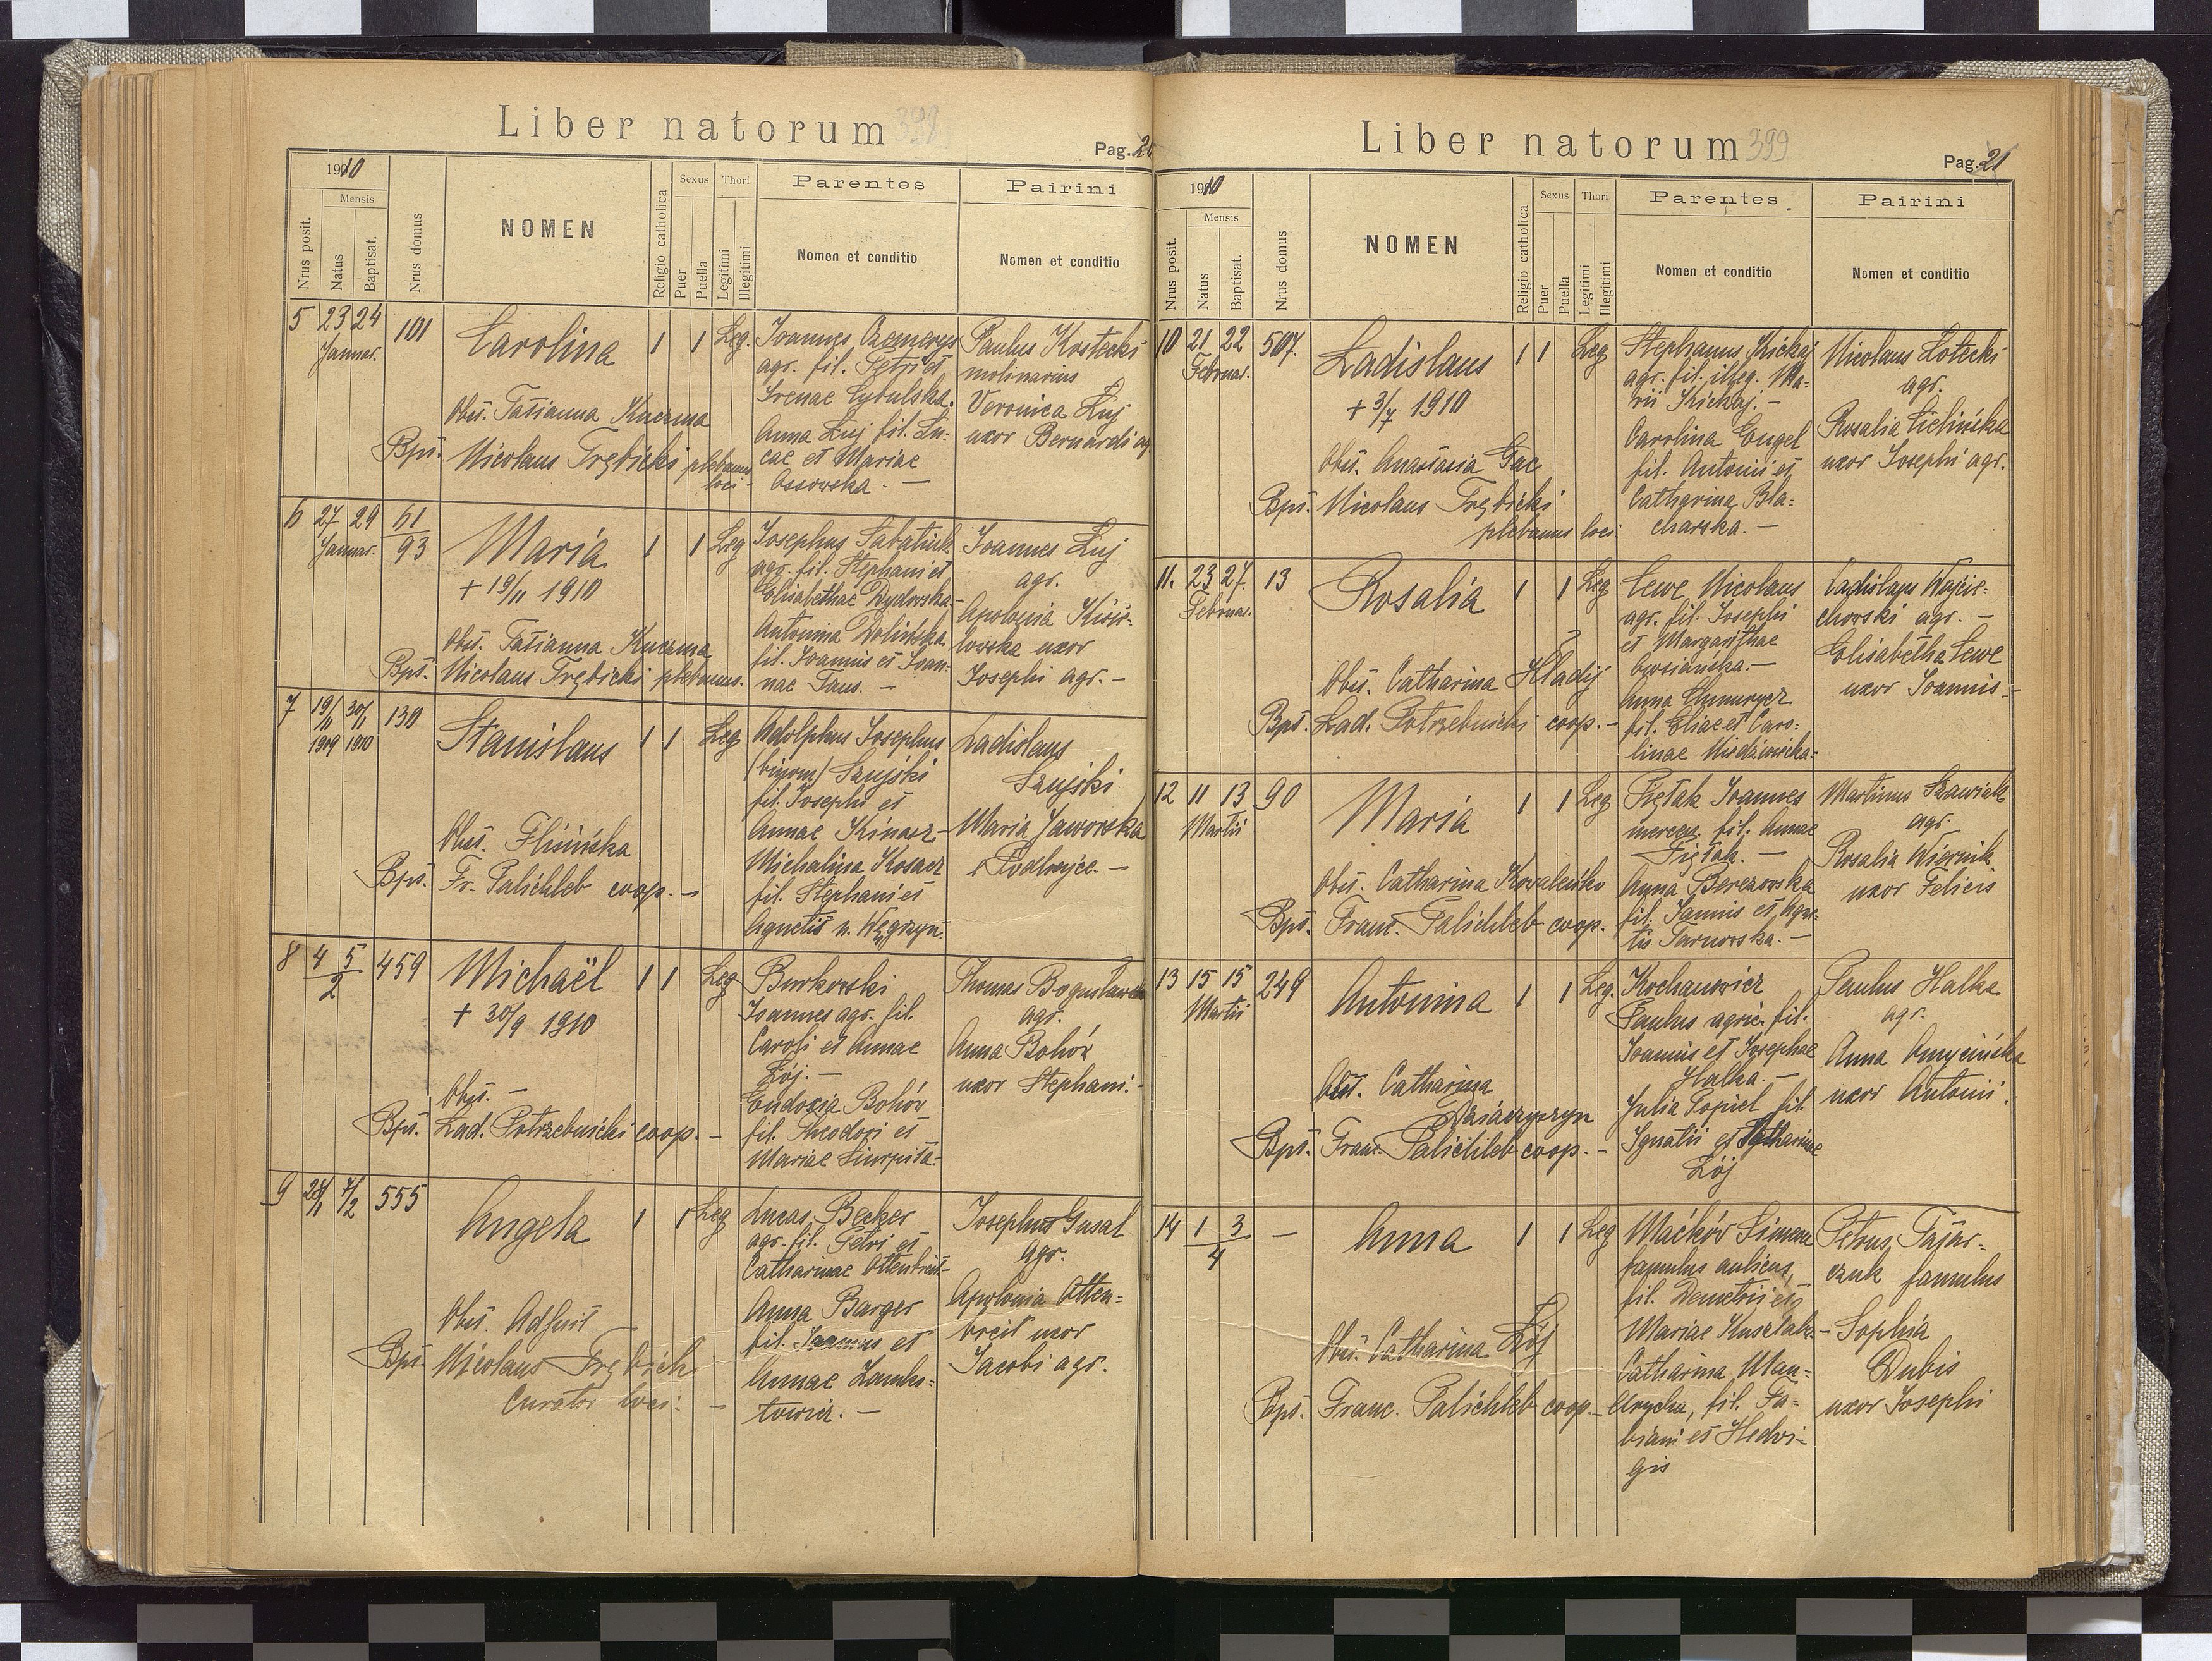 Liber natorum 398
Pag. 20
1910
Mensis
Nrus posit.
Natus
Baptisat.
Nrus domus
NOMEN
Religio catholica
Sexus
Puer
Puella
Thori
Legitimi
Illegitimi
Parentes
Nomen et conditio
Pairini
Nomen et conditio
5 23 24 Januar. 101
Carolina 1 1 Leg.
Obst. Tatianna Kuczma
Bpt. Nicolaus Trębicki plebanus
loci
Joannes Czemerys
agr. fil. Petri et
Irenae Cybulska.
Anna Łuj fil. Lu-
cae et Mariae
Ossowska. —
Paulus Kostecki
molinarius
Veronica Łuj
uxor Bernardi ag
6 27 29 Januar. 61
93
Maria 1 1 Leg
+ 19/11 1910
Obst. Tatianna Kuczma
Bpt. Nicolaus Trębicki plebanus.
Josephus Sabatiuk
agr. fil. Stephani et
Elisabethae Dydowska-
Antonina Dolińska
fil. Joannis et Joan-
nae Taus. —
Joannes Łuj
agr.
Apolonia
lowska uxor
Josephi agr. —
7 19/11 1909 30/1 1910 130
Stanislaus 1 1 Leg
Obst. Flisińska
Bpt. Fr. Palichleb coop. —
Adolphus Josephus
(binom) Szujski
fil. Josephi et
Annae Kinasz-
Michalina Kosacz
fil. Stephani et
Agnetis n. Węgrzyn.
Ladislaus
Szujski
Maria Jaworska
Podhajce. —
8 4 5
2 459
Michaël 1 1 Leg
+ 30/9 1910
Obst. —
Bpt. Lad. Potrzebnicki coop. —
Burkowski
Joannes agr. fil.
Caroli et Annae
Łój. —
Eudoxia Bohów
fil. Theodori et
Mariae
Thomas Bogusławski
agr.
Anna Bohów
uxor Stephani. -
9 28/1 7/2 555
Angela 1 1 Leg
Obst. Adfuit —
Bpt. Nicolaus Trębicki
Curator loci. —
Lucas Becker
agr. fil. Petri et
Catharinae Ottenbreit-
Anna Barger
fil. Joannis et
Annae Zamko-
towicz. —
Josephus Gusal
agr.
Apolonia Otten-
breit uxor
Jacobi agr.
Liber natorum 399
Pag. 21
1910
Mensis
Nrus posit.
Natus
Baptisat.
Nrus domus
NOMEN
Religio catholica
Sexus
Puer
Puella
Thori
Legitimi
Illegitimi
Parentes
Nomen et conditio
Pairini
Nomen et conditio
10 21 22 Februar. 507.
Ladislaus 1 1 Leg
+ 3/7 1910
Obst. Anastasia Gac
Bpt. Nicolaus Trębicki
plebanus loci
Stephanus Krickaj
agr. fil. illeg. Ma-
rii Krickaj. —
Carolina Engel
fil. Antonii et
Catharina Bla-
charska. —
Nicolaus Łotecki
agr.
Rosalia Zielińska
uxor Josephi agr.
11. 23 27. Februar. 13
Rosalia 1 1 Leg
Obst. Catharina Hladij
Bpt. Lad. Potrzebnicki coop. —
Lewe Nicolaus
agr. fil. Josephi
et Margarithae
Owsiańska. —
Anna
fil. Eliae et Caro-
linae Niedzwiecka-
Ladislaus Wojcie-
chowski agr. —
Elisabetha Lewe
uxor Joannis -
12 11 13 Martii 90
Maria 1 1 Leg
Obst. Catharina Kowaleńko
Bpt. Franc. Palichleb coop.
Piętak Joannes
mercen. fil. Annae
Piętak. —
Anna Berezowska
fil. Joannis et Agne-
tis Tarnowska. —
Martinus Szawiak
agr.
Rosalia Wiernik
uxor Felicis
13 15 15 Martii 249
Antonina 1 1 Leg.
Obst. Catharina
Bpt. Franc. Palichleb coop. —
Kochanowicz
Paulus agric. fil.
Joannis et Josephae
Halka. —
Julia Popiel fil.
Ignatii et Catharinae
Łój
Paulus Halka
agr.
Anna
uxor Antonii.
14 1 3
4 —
Anna 1 1 Leg
Obst. Catharina Łój
Bpt. Franc. Palichleb coop. —
Maćków Simeon
famulus aulicus,
fil. Demetrii et
Mariae
Catharina Man-
drycha, fil. Fa-
biani et Hedvi-
gis
Petrus Tatar-
czuk famulus
Sophia
Dubis
uxor Josephi